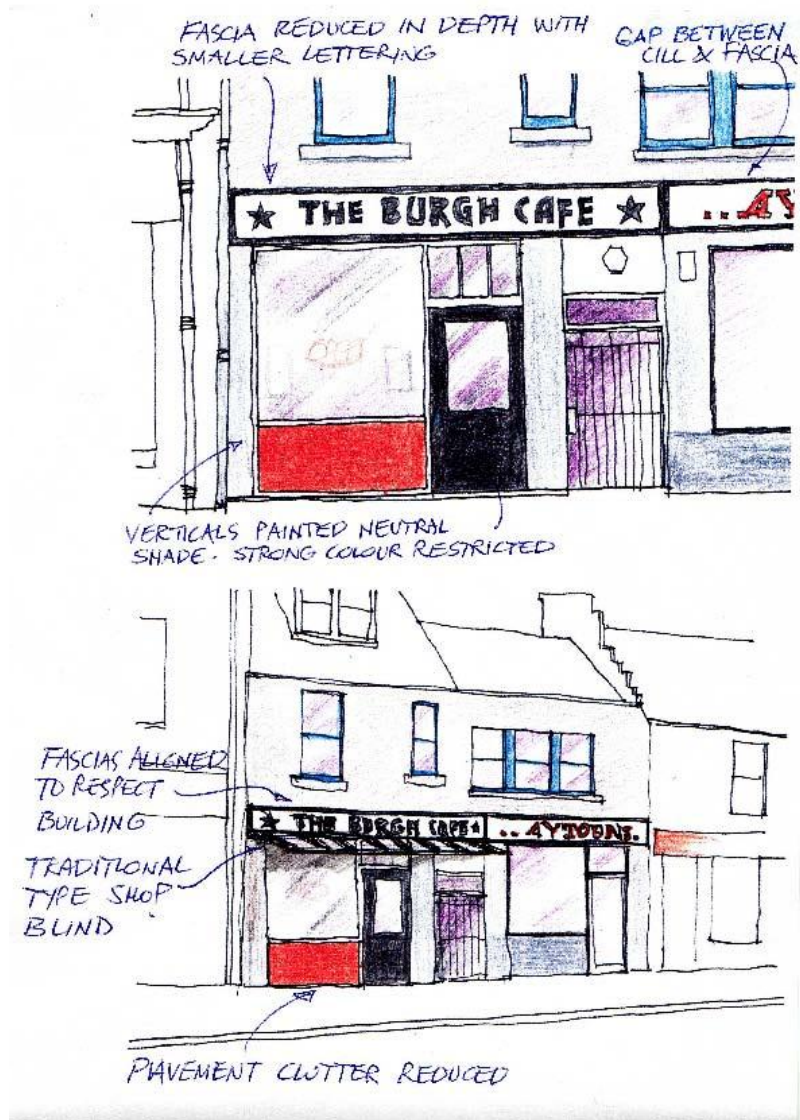 FASCIA REDUCED IN DEPTH WITH
SMALLER LETTERING
GAP BETWEEN
CILL & FASCIA
★ THE BURGH CAFE ★
..AY
VERTICALS PAINTED NEUTRAL
SHADE. STRONG COLOUR RESTRICTED
FASCIAS ALIGNED
TO RESPECT
BUILDING
★ THE BURGH CAFE ★
..AYTOUNS.
TRADITIONAL
TYPE SHOP
BLIND
PAVEMENT CLUTTER REDUCED